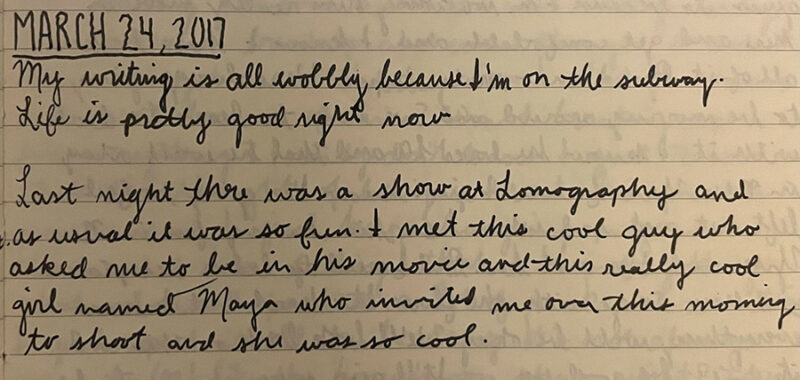 MARCH 24, 2017
My writing is all wobbly because I'm on the subway.
Life is pretty good right now
Last night there was a show at Lomography and
as usual it was so fun. I met this cool guy who
asked me to be in his movie and this really cool
girl named Maya who invited me over this morning
to shoot and she was so cool.